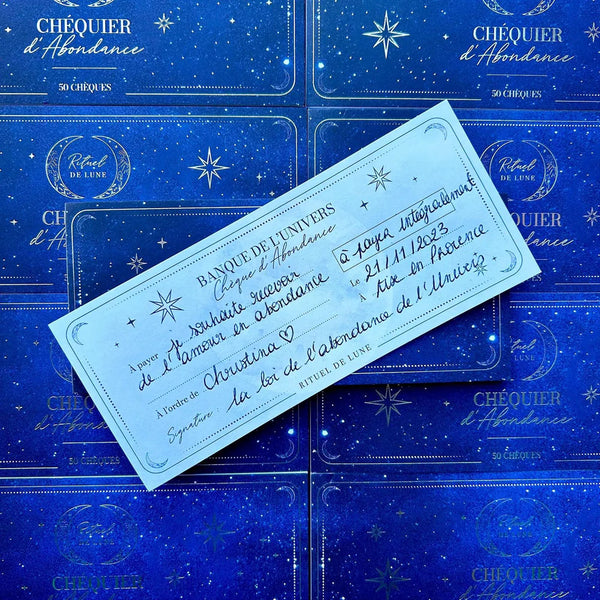 CHÉQUIER
d'Abondance
50 CHÈQUES
CHÉQUIER
d'Abondance
50 CHÈQUES
Rituel
DE LUNE
Rituel
DE LUNE
BANQUE DE L'UNIVERS
Chèque d'Abondance
à payer Intégralement
À payer : je souhaite recevoir
de l'amour en abondance
Le 21/11/2023
À Aix en Provence
À l'ordre de Christina ♡
Signature : La loi de l'abondance de l'Univers
RITUEL DE LUNE
CHÉQUIER
d'Abondance
50 CHÈQUES
CHÉQUIER
d'Abondance
50 CHÈQUES
Rituel
DE LUNE
Rituel
DE LUNE
CHÉQUIER
d'Abondance
CHÉQUIER
d'Abondance